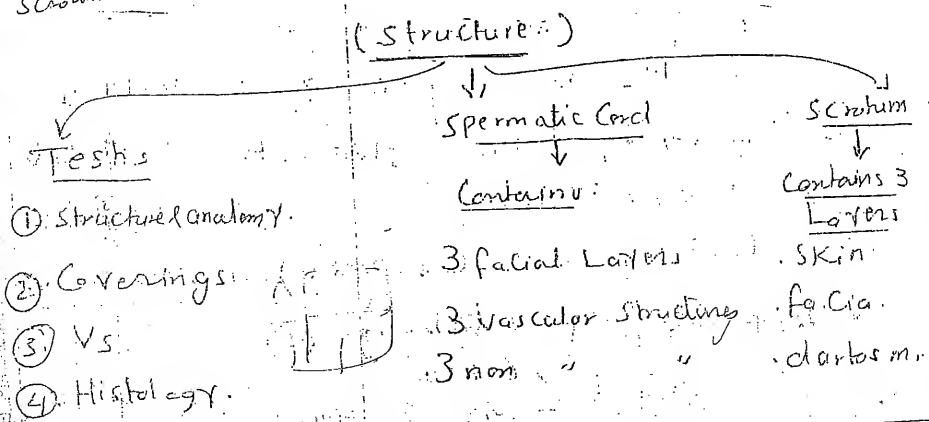 ( Structure :- )
Testis
① Structure & anatomy.
② Coverings
③ Vs
④ Histology.
Spermatic Cord
Contains :
3 facial Layers
3 vascular Structures
3 non " "
Scrotum
Contains 3
Layers
. Skin
. facia.
. dartos m.